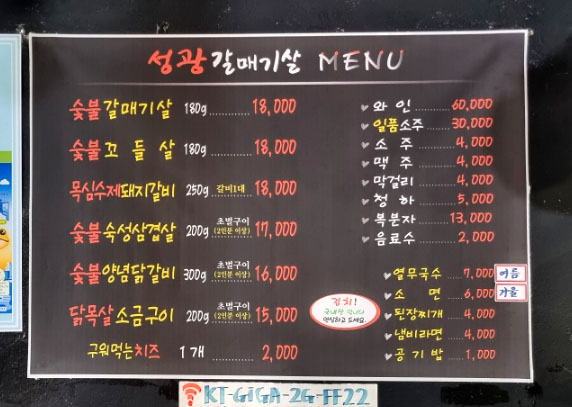 성광 갈매기살 MENU
숯불 갈매기살 180g 18,000
숯불 꼬들살 180g 18,000
목심수제돼지갈비 250g 갈비1대 18,000
숯불 숙성삼겹살 200g 초벌구이 (2인분 이상) 17,000
숯불 양념닭갈비 300g 초벌구이 (2인분 이상) 16,000
닭목살 소금구이 200g 초벌구이 (2인분 이상) 15,000
구워먹는치즈 1개 2,000
와인 60,000
일품소주 30,000
소주 4,000
맥주 4,000
막걸리 4,000
청하 5,000
복분자 13,000
음료수 2,000
열무국수 7,000 여름
소면 6,000 겨울
된장찌개 4,000
냄비라면 4,000
공기밥 1,000
김치!
국내산 입니다
안심하고 드세요.
KT-GiGA-2G-FF22